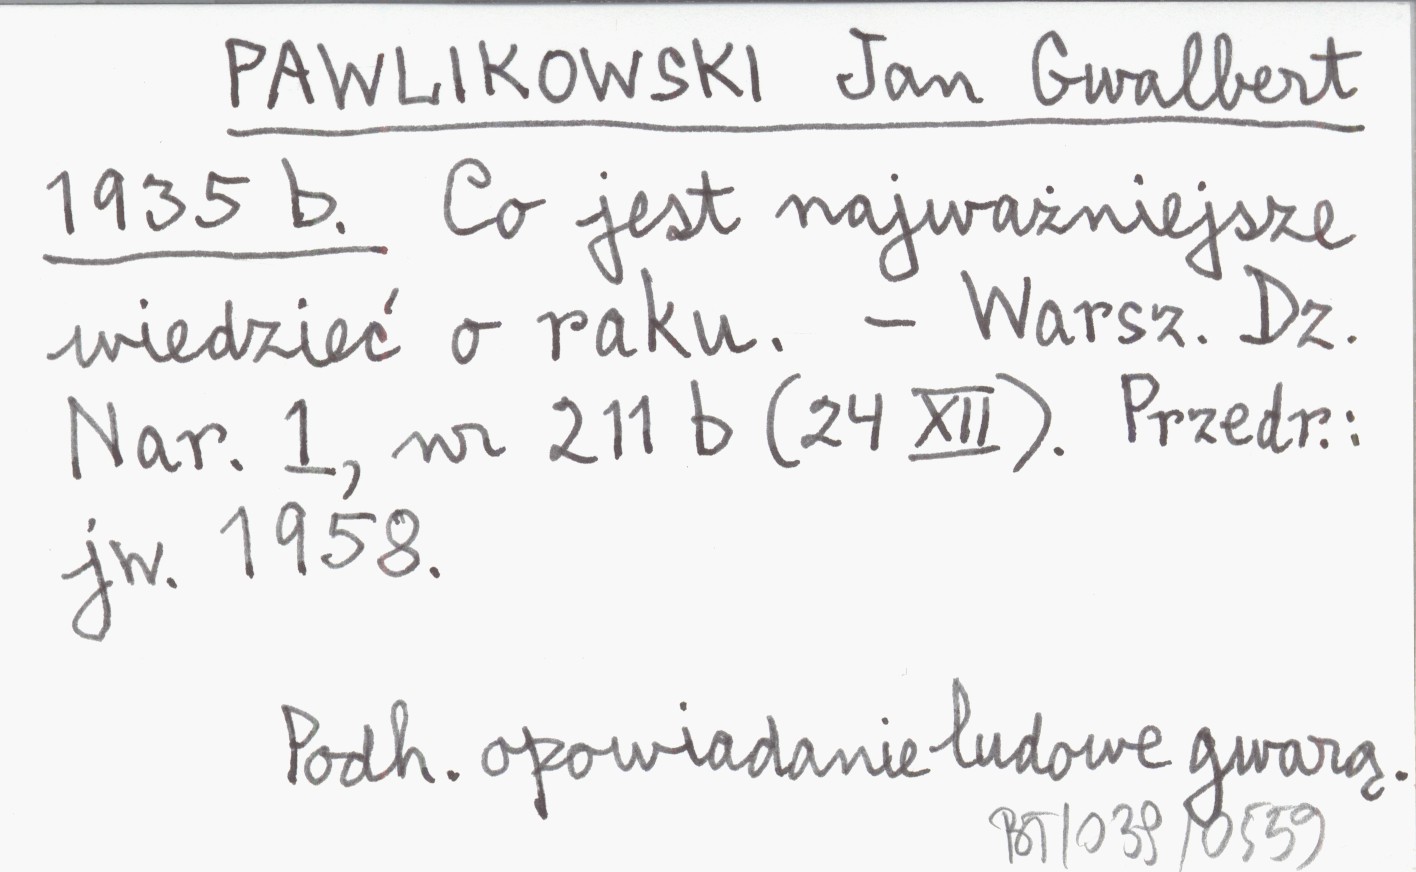 PAWLIKOWSKI Jan Gwalbert
1935 b. Co jest najważniejsze
wiedzieć o raku. – Warsz. Dz.
Nar. 1, nr 211 b (24 XII). Przedr.:
jw. 1958.
Podh. opowiadanie ludowe gwarą.
BT/039/0559